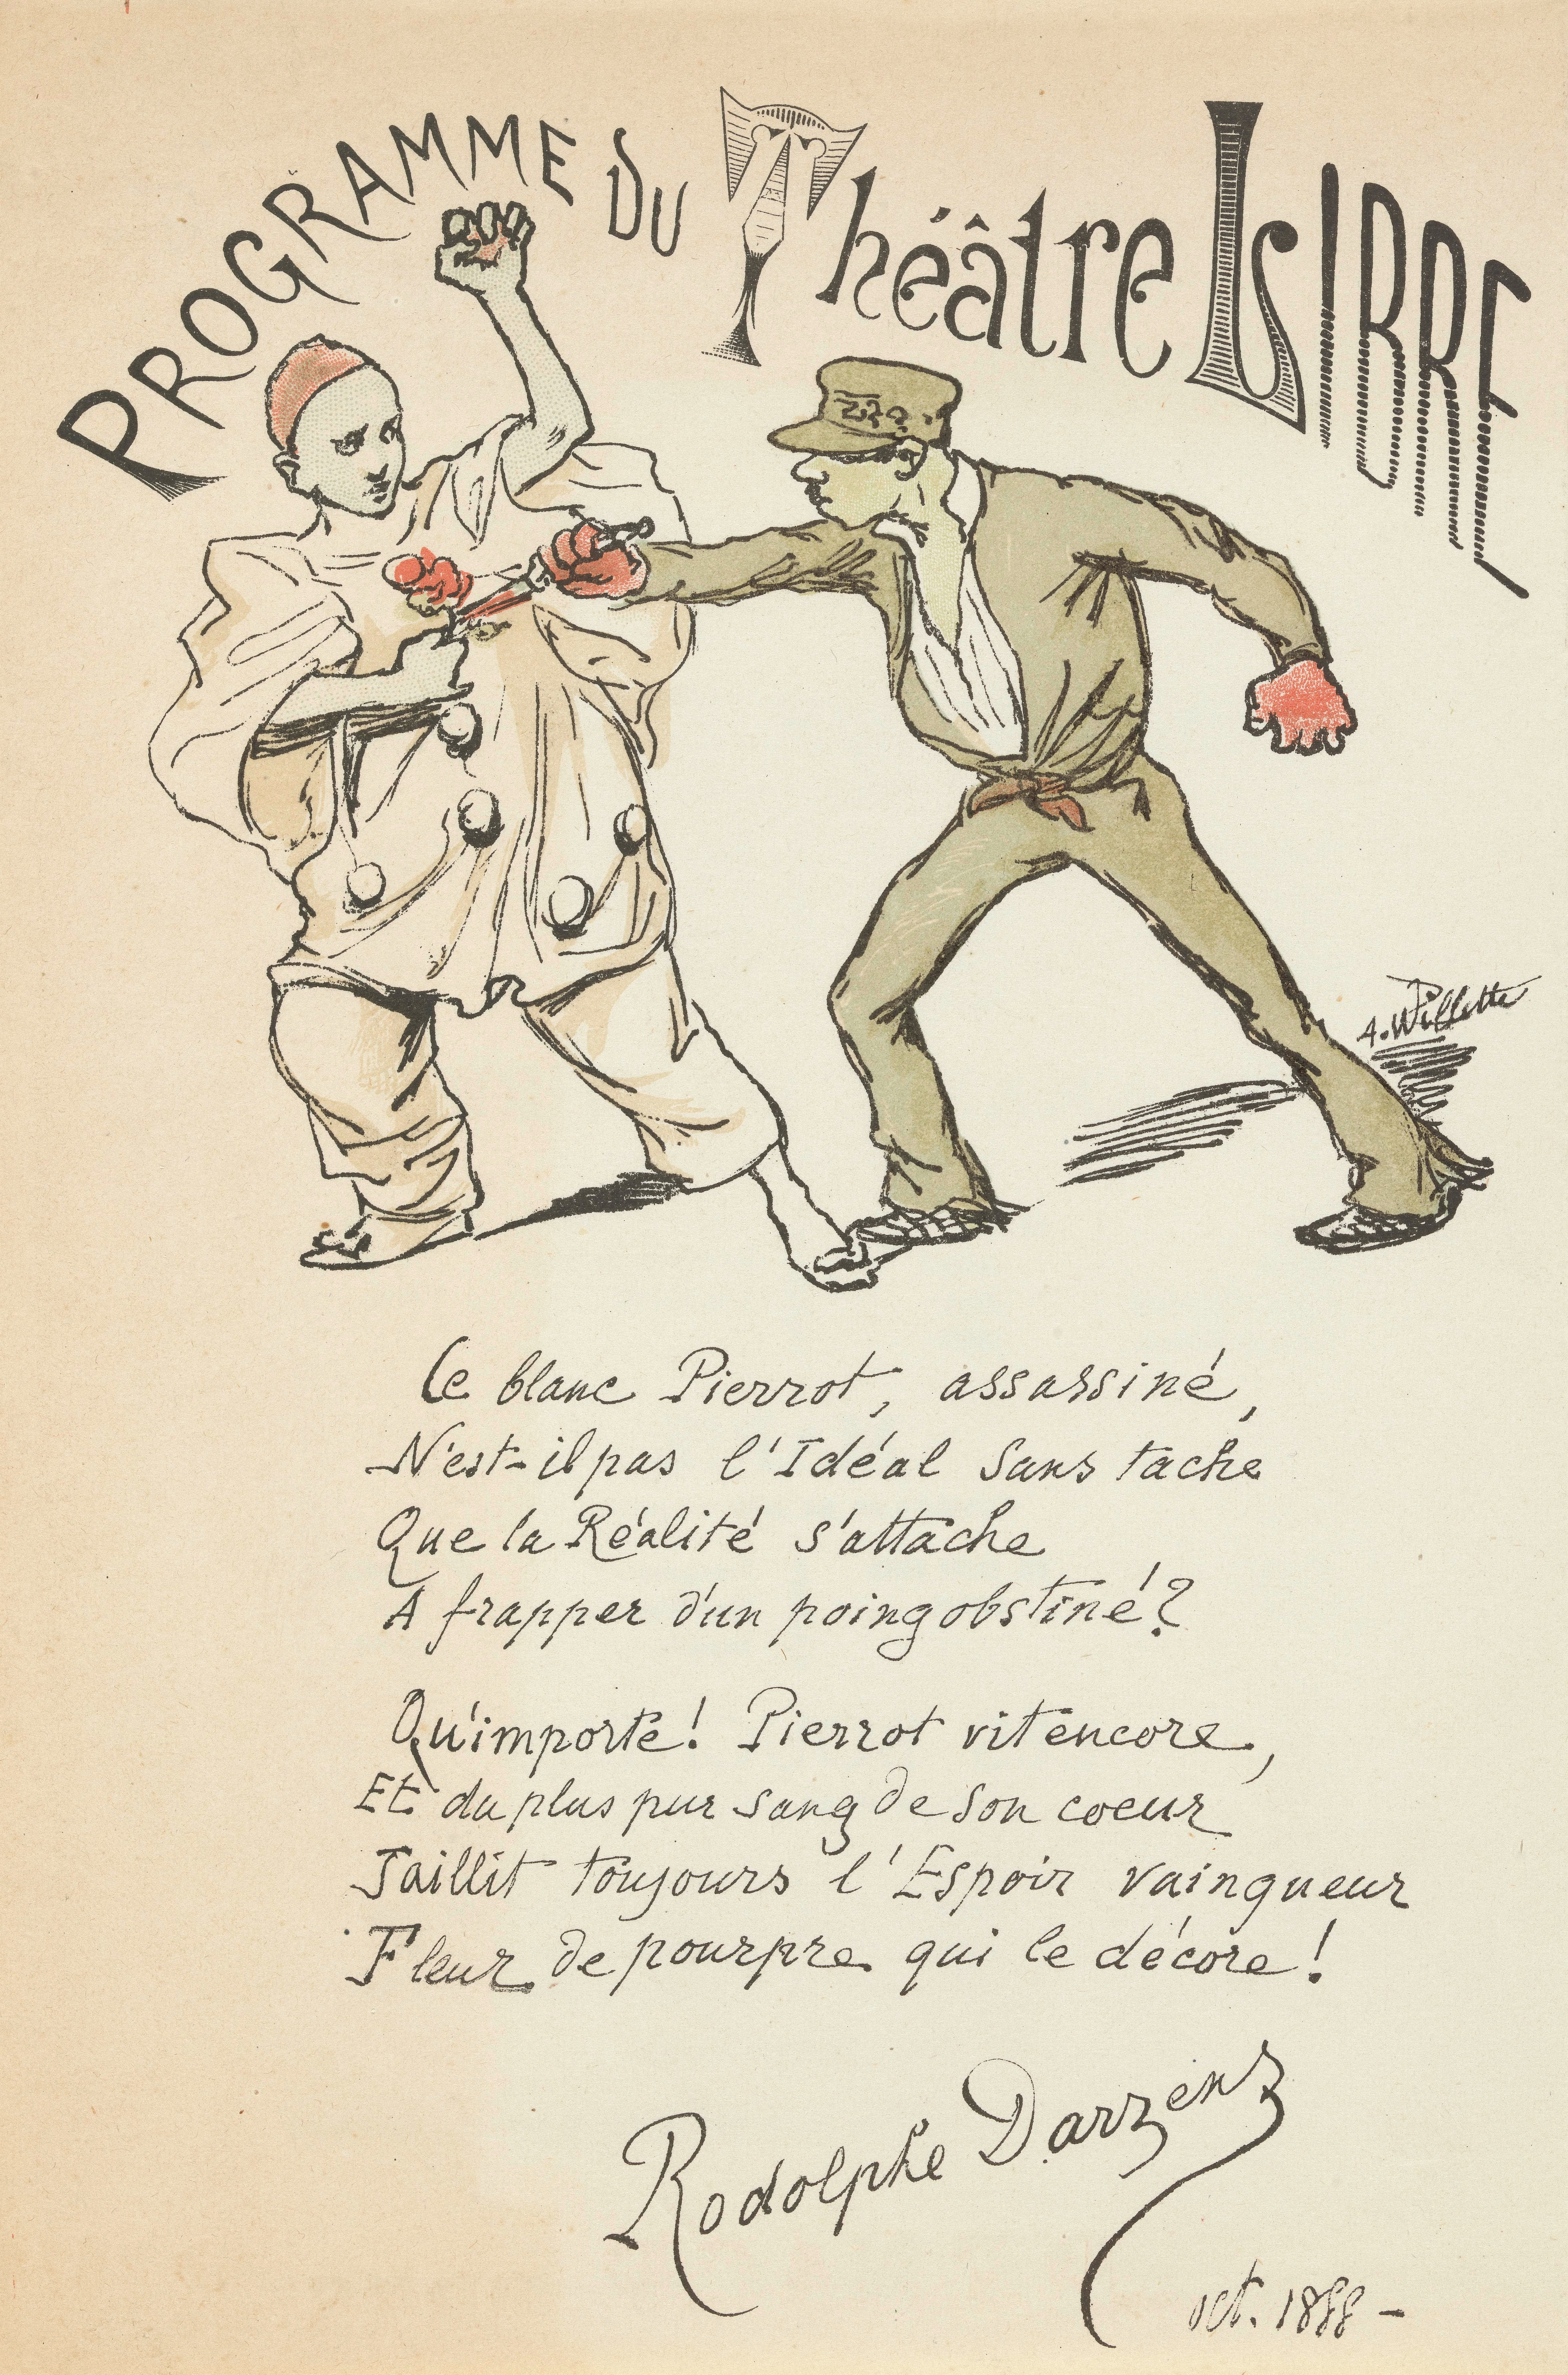 PROGRAMME DU Théâtre LIBRE
A. Willette
Ce blanc Pierrot, assassiné,
N'est-il pas l'Idéal sans tache
Que la Réalité s'attache
A frapper d'un poing obstiné?
Qu'importe! Pierrot vit encore,
Et du plus pur sang de son coeur
Jaillit toujours l'Espoir vainqueur
Fleur de pourpre qui le décore!
Rodolphe Darzens
oct. 1888 -